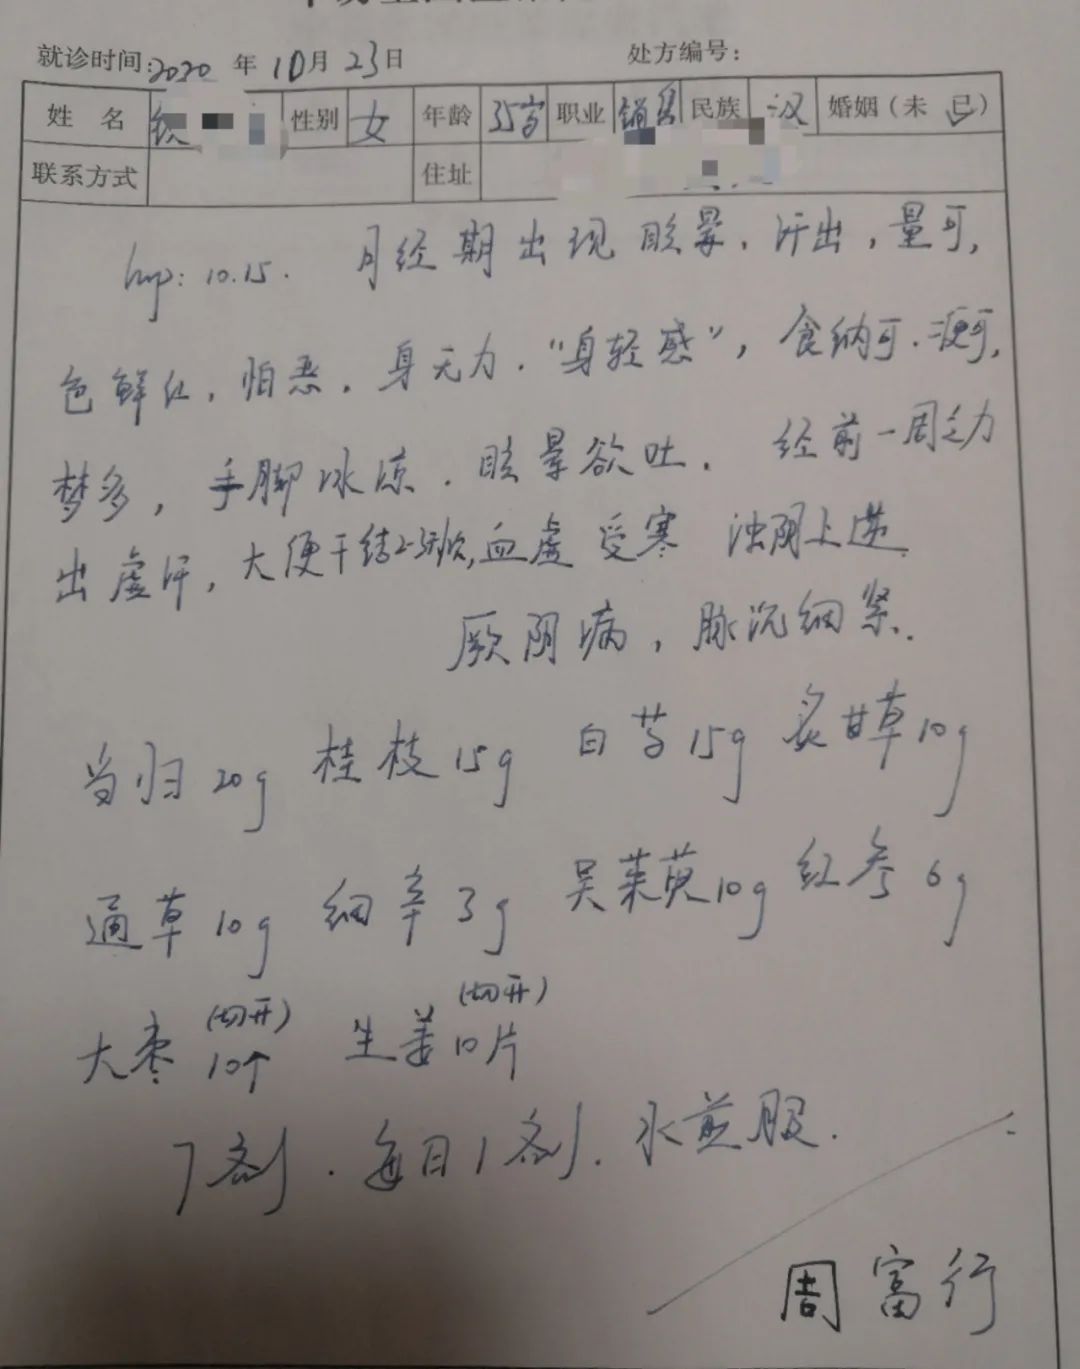 就诊时间:2020 年 10月 23日 处方编号:
姓 名 性别 女 年龄 35岁 职业 销售 民族 汉 婚姻(未 已)
联系方式 住址
lmp: 10.15. 月经期出现眩晕,汗出,量可,
色鲜红,怕恶,身无力,"身轻感",食纳可,便可,
梦多,手脚冰凉,眩晕欲吐. 经前一周乏力
出虚汗,大便干结2-3次,血虚受寒 浊阴上逆.
厥阴病,脉沉细紧.
当归20g 桂枝15g 白芍15g 炙甘草10g
通草10g 细辛3g 吴茱萸10g 红参6g
大枣(切开)10个 生姜(切开)10片
7剂.每日1剂.水煎服.
周富行